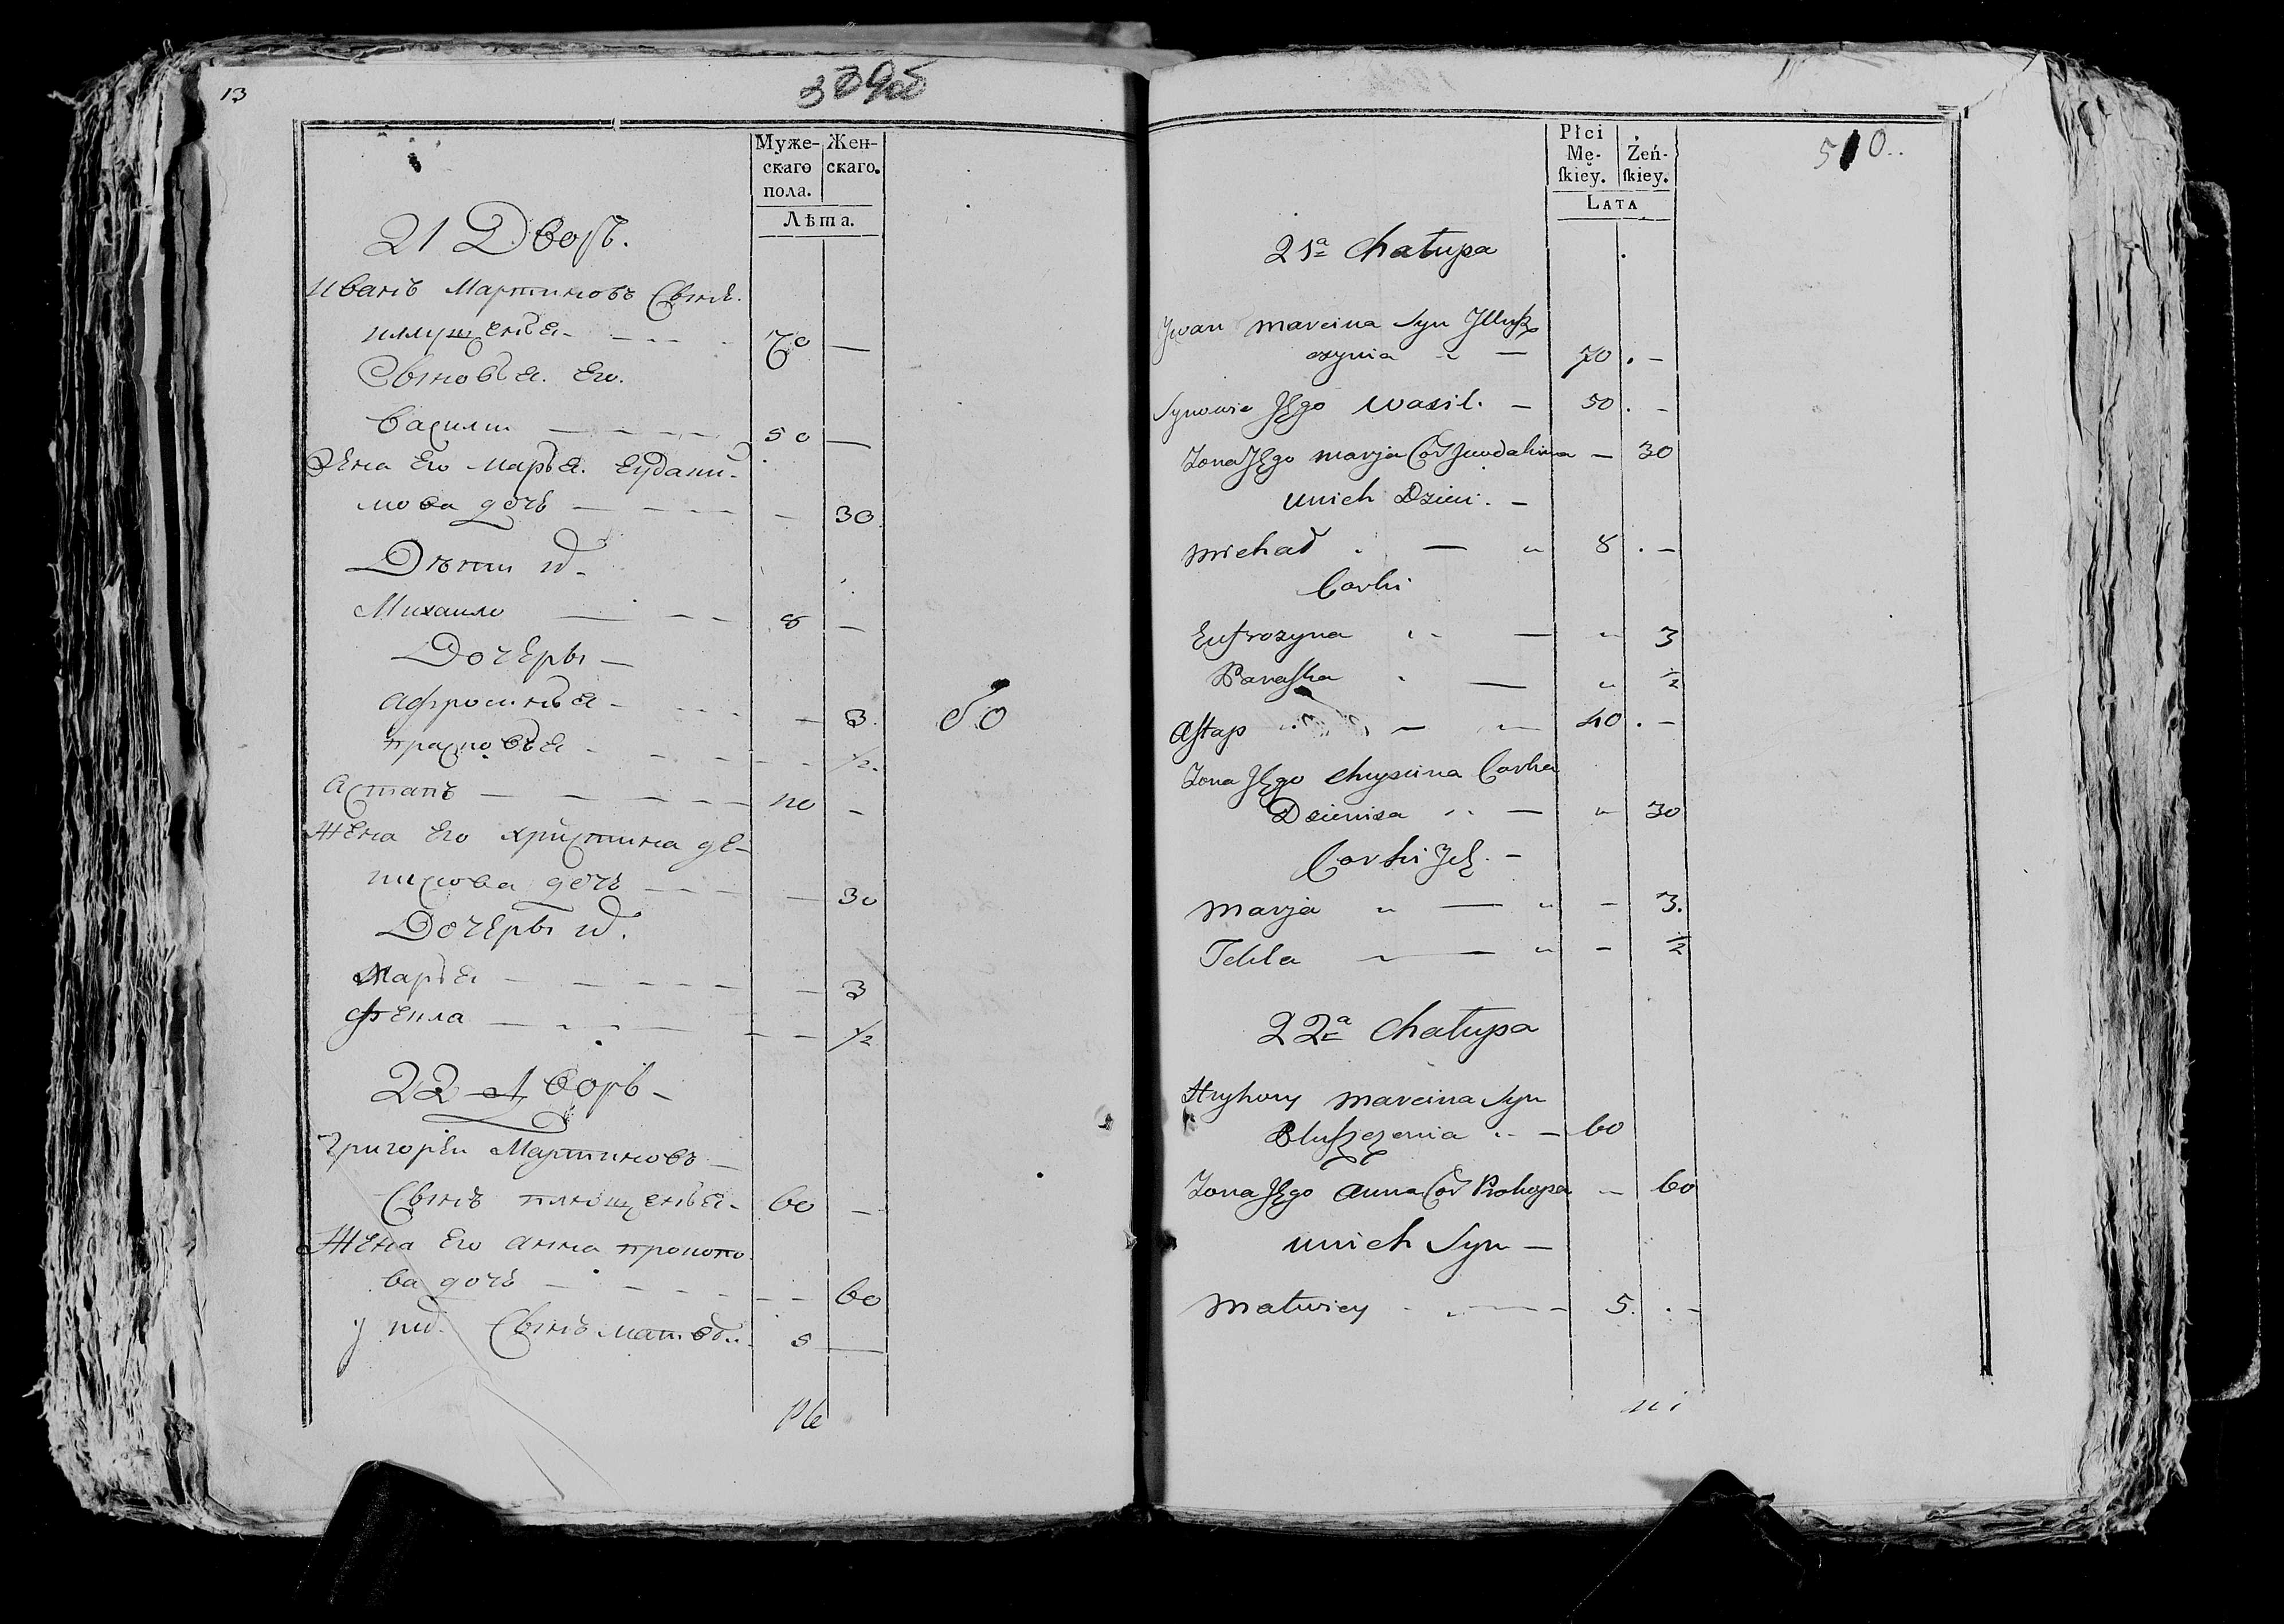 13
Муже-
скаго
пола.
Жен-
скаго.
Лѣта.
21 Дворъ.
Иванъ Мартиновъ Сынъ
плущенья 70 —
Сыновья Его.
Василии 50 —
Жена Его Марья
мова дочь — 30
Дѣти их
Михаило 8 —
Дочеры —
Афросинья — 3
Прасковья — 1/2.
Астапъ — 40 —
Жена Его христина де-
нисова дочь — 30
Дочеры их.
Марья — 3
Фекла — 1/2
22 Дворъ —
Григорѣи Мартиновъ —
Сынъ плющенья 60 —
Жена Его Анна прокопо
ва дочь — 60
у них Сынъ 5 —
50
Płci
Mę-
ſkiey.
Żeń-
ſkiey.
LATA
510..
21a Chałupa
Jwan Marcina Syn
70 . —
Synowie Jego Wasil. — 50 . —
Zona Jego Marja — 30
unich Dzieci. —
Michał — 8 . —
Corki
Eufrozyna — 3
Paraſka — 1/2
Aſtap — 40 . —
Zona Jego Chryscina Corka
Dzienisa — 30
Corki Jch. —
Marja — 3.
Tekla — 1/2
22a Chałupa
Hryhory Marcina Syn
Pluſzczenia — 60
Zona Jego Anna Cor Prokopa — 60
unich Syn —
Matwiey — 5. . —